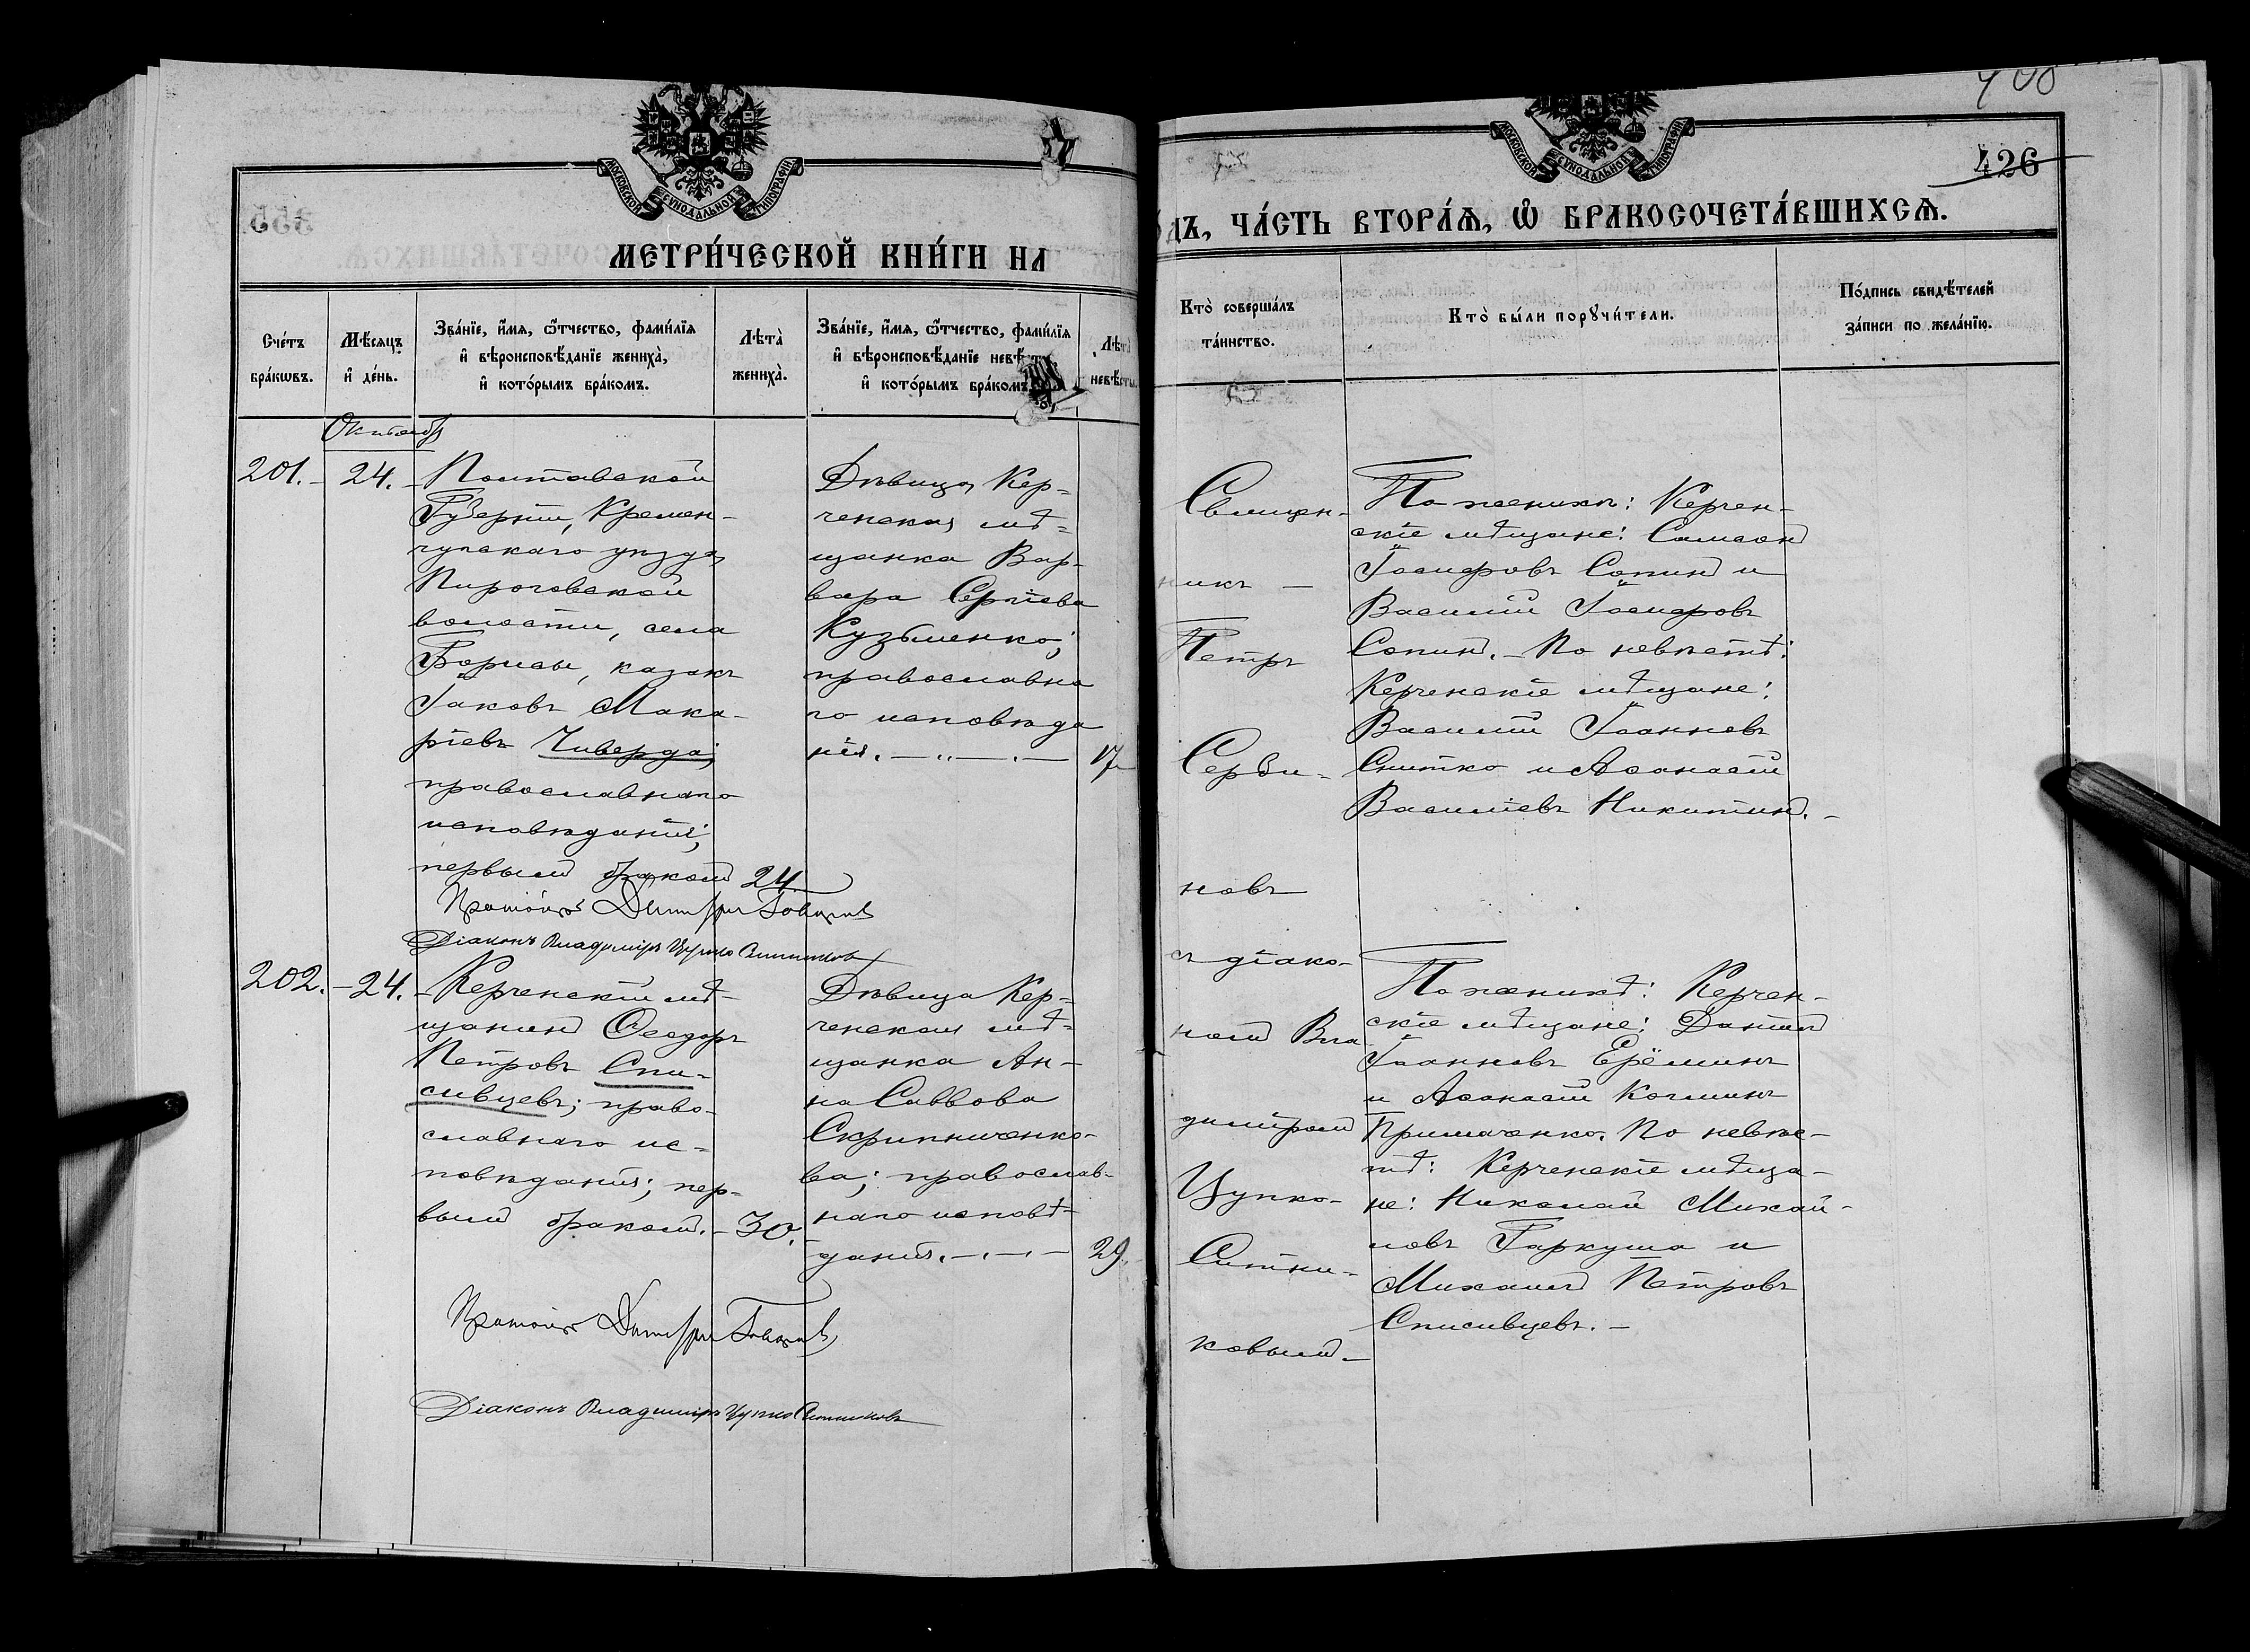 МОСКОВСКОЙ СѴНОДАЛЬНОЙ ТИПОГРАФІИ
МЕТРИ́ЧЕСКОЙ КНИ́ГИ НА
Сче́тъ бра́кѡвъ.
Мѣ́сяцъ и҆ де́нь.
Зва́нїе, и҆́мя, ѻ҆́тчество, фами́лїя и҆ вѣроисповѣ́данїе жениха̀, и҆ кото́рымъ бра́комъ.
Лѣта̀ жениха̀.
Зва́нїе, и҆́мя, ѻ҆́тчество, фами́лїя и҆ вѣроисповѣ́данїе невѣ́сты и҆ кото́рымъ бра́комъ
Лѣта̀ невѣ́сты.
Октябрь
201. - 24. - Полтавской
Губерніи, Кремен-
чугскаго уѣзда,
Пироговской
волости, села
Борисы, казакъ
Іаковъ Мака-
ріевъ Чиверда;
православнаго
исповѣданія;
первымъ бракомъ 24
Дѣвица, Кер-
ченская мѣ-
щанка Вар-
вара Сергіева
Кузьменко;
православна
го исповѣда
нія. 17
Протоіер Димитри
Діаконъ Владиміръ Цупко Ситниковъ
202. - 24. - Керченскій мѣ-
щанинъ Ѳеодоръ
Петровъ Спи-
сивцевъ; право-
славнаго ис-
повѣданія; пер-
вымъ бракомъ. - 30.
Дѣвица Кер-
ченская мѣ-
щанка Ан-
на Саввова
Скрипниченко-
ва; православ-
наго исповѣ-
данія. 29.
Протоіер Димитри
Діаконъ Владиміръ Цупко Ситниковъ
400
426
МОСКОВСКОЙ СѴНОДАЛЬНОЙ ТИПОГРАФІИ
ѻ҆́дъ, ЧА́СТЬ ВТОРА́Ѧ, Ѡ҆ БРАКОСОЧЕТА́ВШИХСѦ.
Кто̀ соверша́лъ та́инство.
Кто̀ бы́ли порꙋчи́тели.
По́дпись свидѣ́телей за́писи по жела́нїю.
Священ-
никъ -
Петръ
Серби-
новъ
съ діако-
номъ Вла
диміромъ
Цупко-
Ситни-
ковымъ.
По женихѣ: Керчен-
скіе мѣщане: Самсонъ
Іосифовъ Сопинъ и
Василій Іосифовъ
Сопинъ. - По невѣстѣ:
Керченскіе мѣщане:
Василій Іоанновъ
Снитко и Аѳанасій
Василіевъ Никитинъ. -
По женихѣ: Керчен-
скіе мѣщане: Даніилъ
Іоанновъ Ерёминъ
и Аѳанасій Косминъ
Примаченко. По невѣс-
тѣ: Керченскіе мѣща-
не: Николай Михай-
ловъ Гаркуша и
Михаилъ Петровъ
Списивцевъ. -